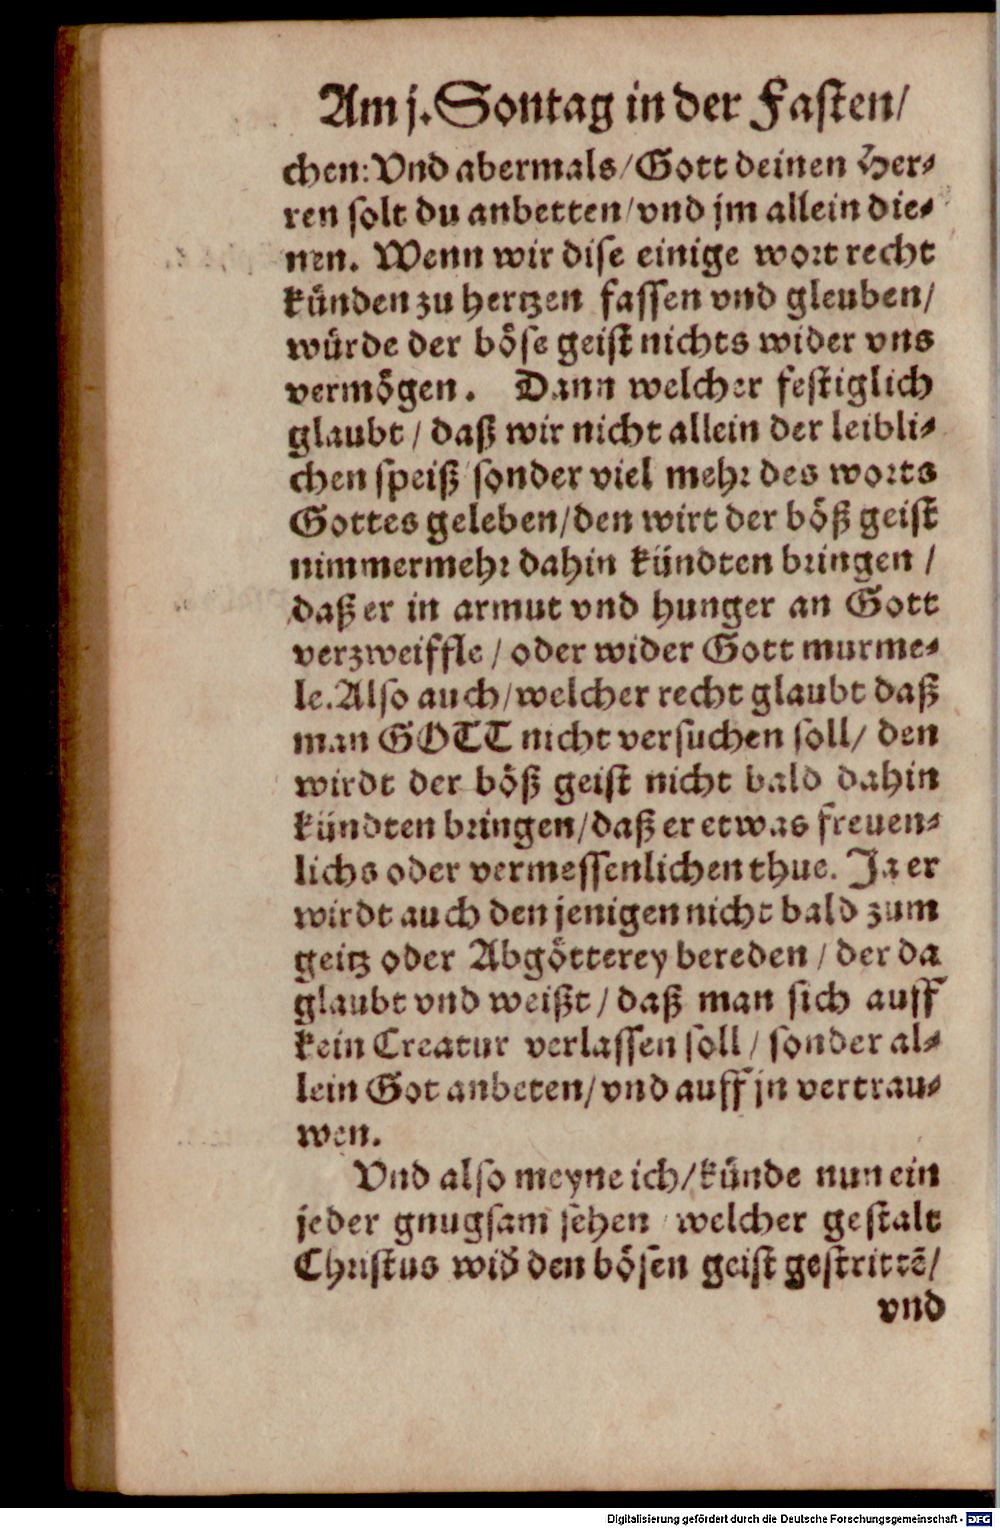 Am j. Sontag in der Fasten/
chen: Vnd abermals/ Gott deinen Her⸗
ren solt du anbetten/ vnd jm allein die⸗
nen. Wenn wir dise einige wort recht
künden zu hertzen fassen vnd gleuben/
würde der böse geist nichts wider vns
vermögen. Dann welcher festiglich
glaubt/ daß wir nicht allein der leibli⸗
chen speiß sonder viel mehr des worts
Gottes geleben/ den wirt der böß geist
nimmermehr dahin kündten bringen/
daß er in armut vnd hunger an Gott
verzweiffle/ oder wider Gott murme⸗
le. Also auch/ welcher recht glaubt daß
man GOTT nicht versuchen soll/ den
wirdt der böß geist nicht bald dahin
kündten bringen/ daß er etwas freuen⸗
lichs oder vermessenlichen thue. Ja er
wirdt auch den jenigen nicht bald zum
geitz oder Abgötterey bereden/ der da
glaubt vnd weißt/ daß man sich auff
kein Creatur verlassen soll/ sonder al⸗
lein Got anbeten/ vnd auff jn vertrau⸗
wen.
Vnd also meyne ich/ künde nun ein
jeder gnugsam sehen welcher gestalt
Christus wid̃ den bösen geist gestrittẽ/
vnd
Digitalisierung gefördert durch die Deutsche Forschungsgemeinschaft - DFG